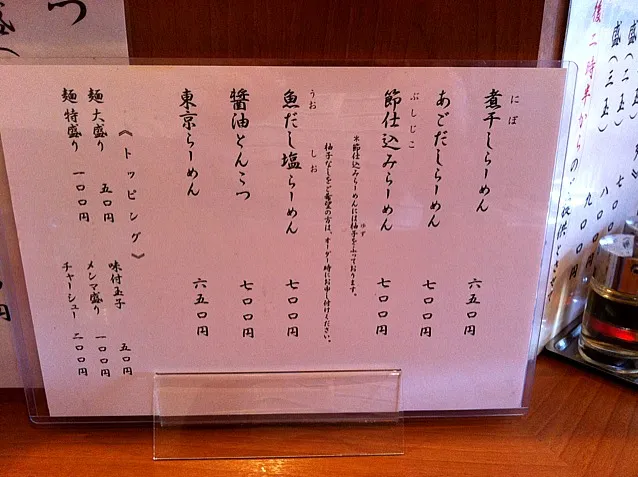 にぼ
煮干しらーめん 六五〇円
あごだしらーめん 七〇〇円
ぶしじこ
節仕込みらーめん 七〇〇円
*節仕込みらーめんには柚子をふっております。
ゆず
柚子なしをご希望の方は、オーダー時にお申し付けください。
うお しお
魚だし塩らーめん 七〇〇円
醤油とんこつ 七〇〇円
東京らーめん 六五〇円
《トッピング》
麺大盛り 五〇円
麺特盛り 一〇〇円
味付玉子 五〇円
メンマ盛り 一〇〇円
チャーシュー 二〇〇円
後二時半から